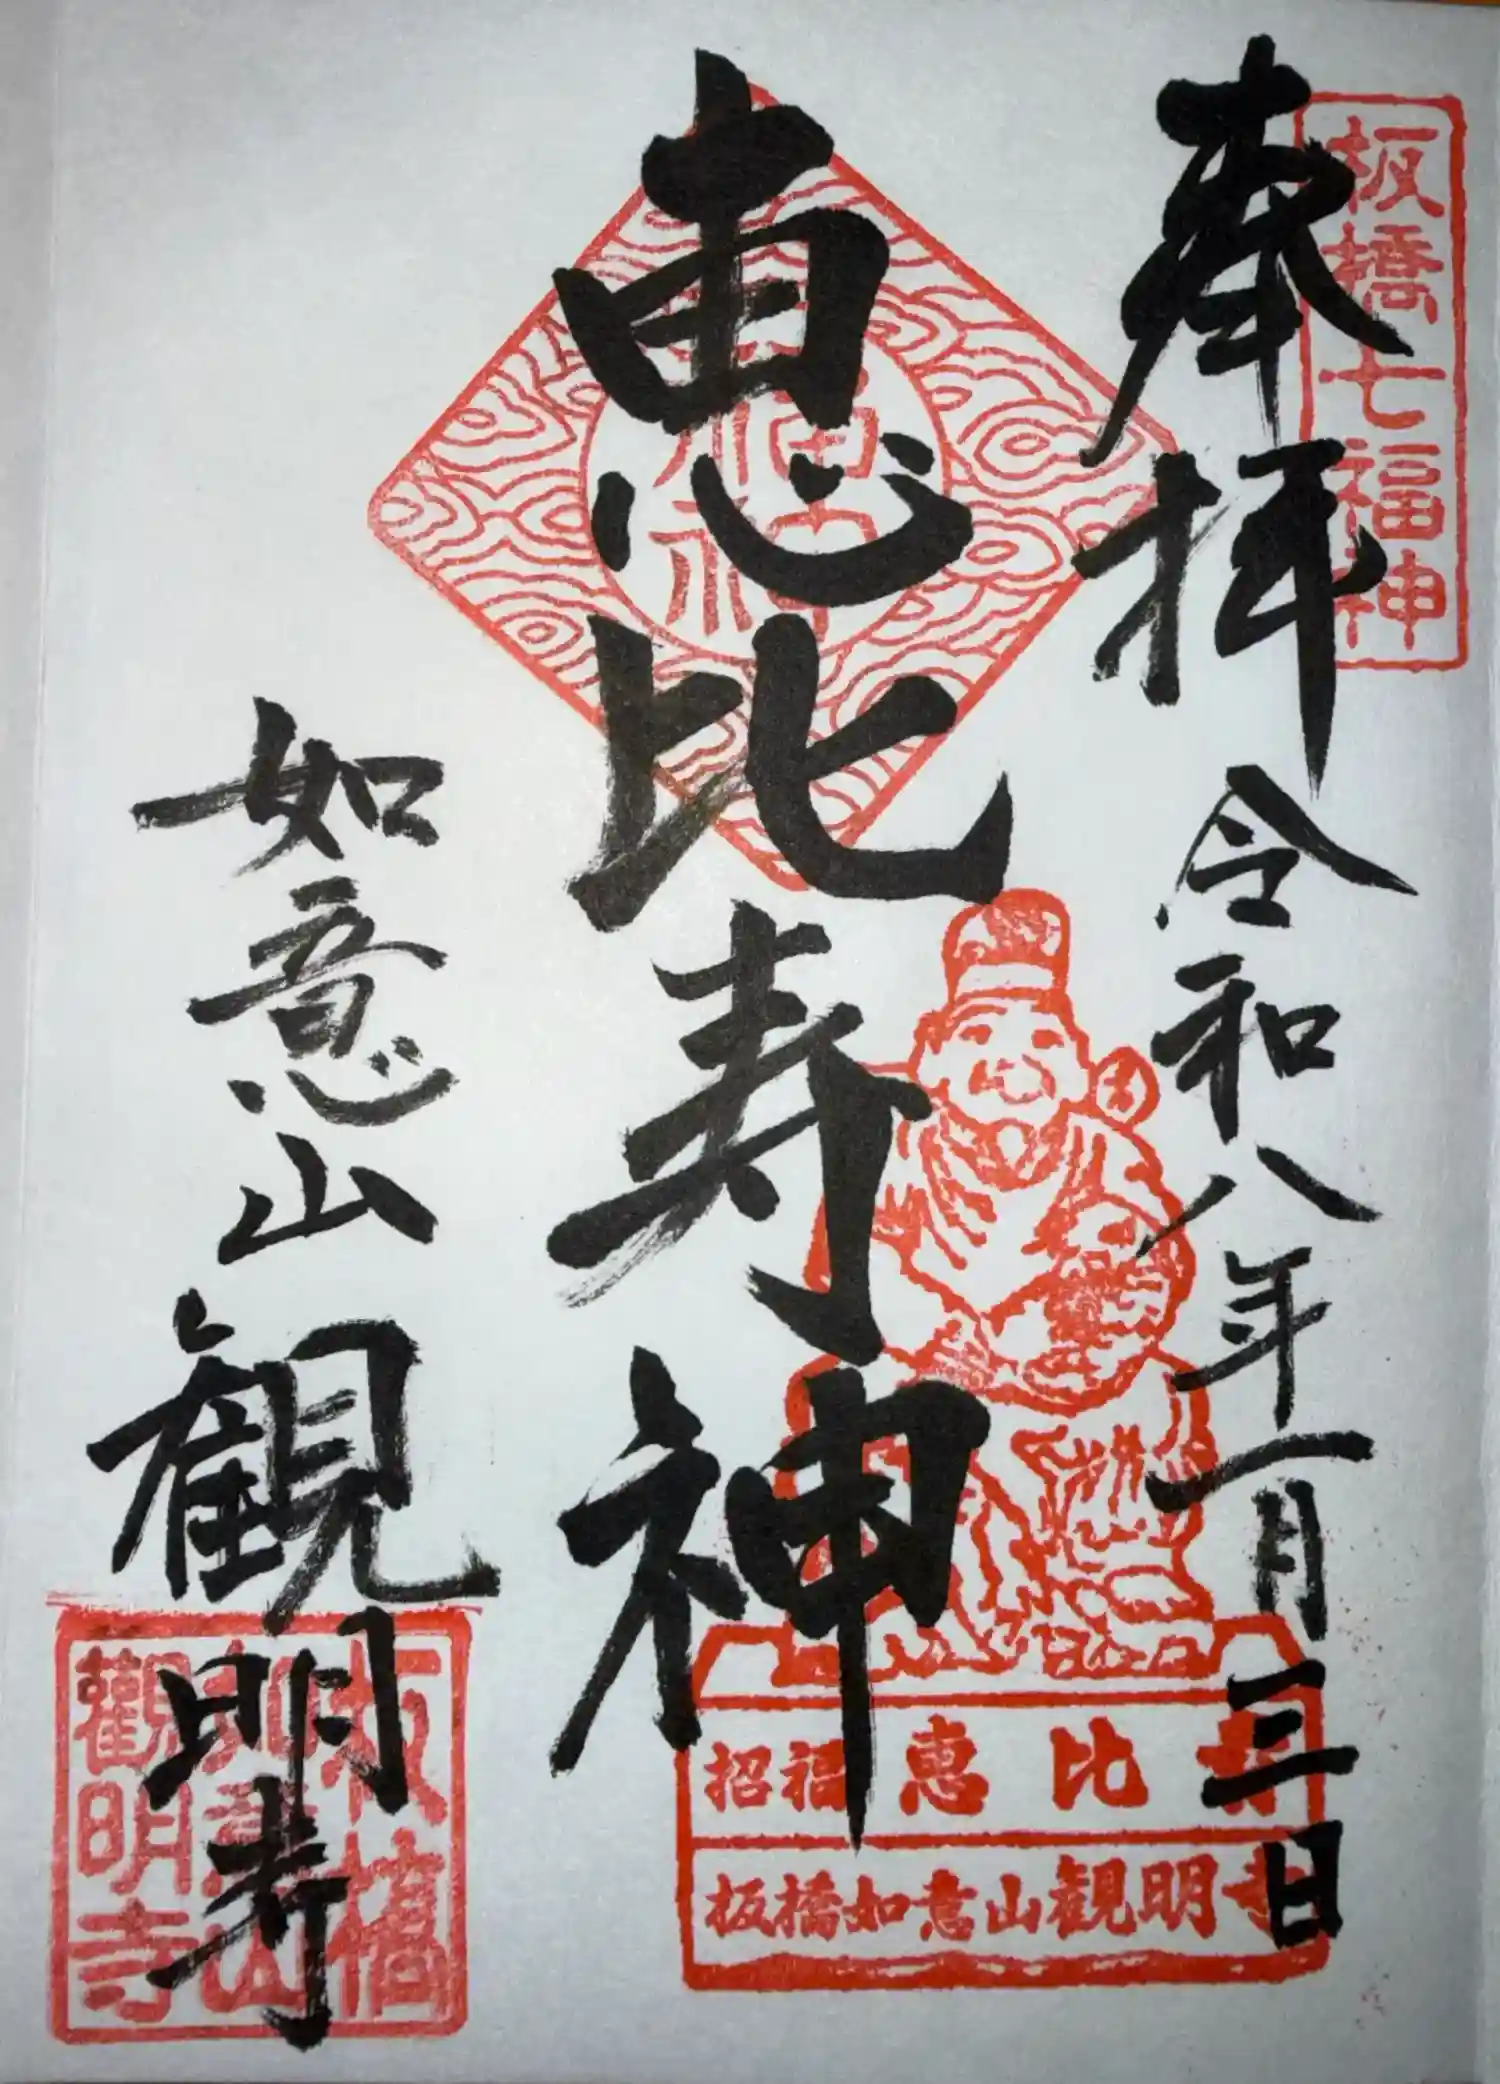 板橋七福神
奉拝 令和八年一月三日
恵比寿神
福神
招福 恵比寿
板橋如意山観明寺
如意山 観明寺
板橋
如意山
觀明寺